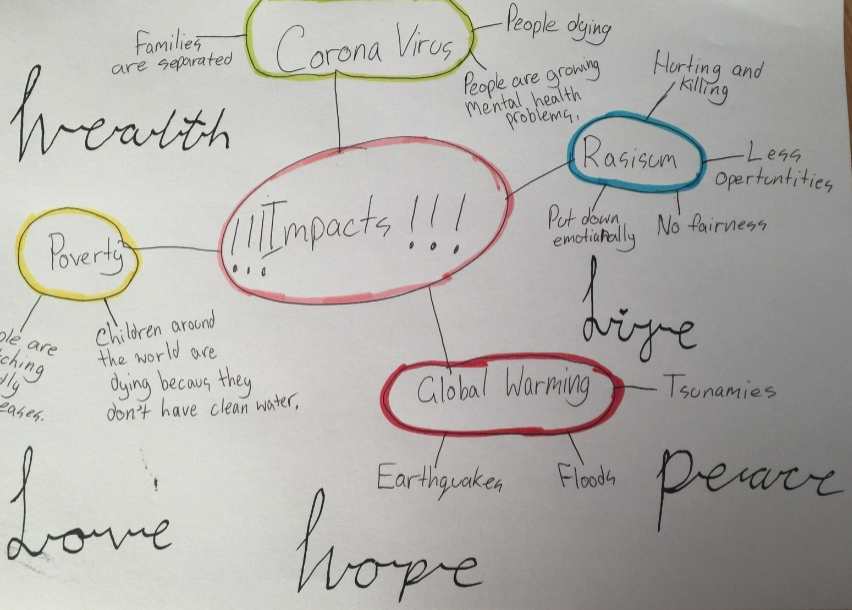 Corona Virus
Families
are separated
People dying
People are growing
mental health
problems.
Hurting and
killing
Rasisum
Less
opertuntities
Put down
emotionally
No fairness
health
!!!Impacts!!!
Poverty
are
Children around
the world are
dying becaus they
don't have clean water.
Life
Global Warming
Tsunamies
Earthquakes
Floods
Love
hope
peace